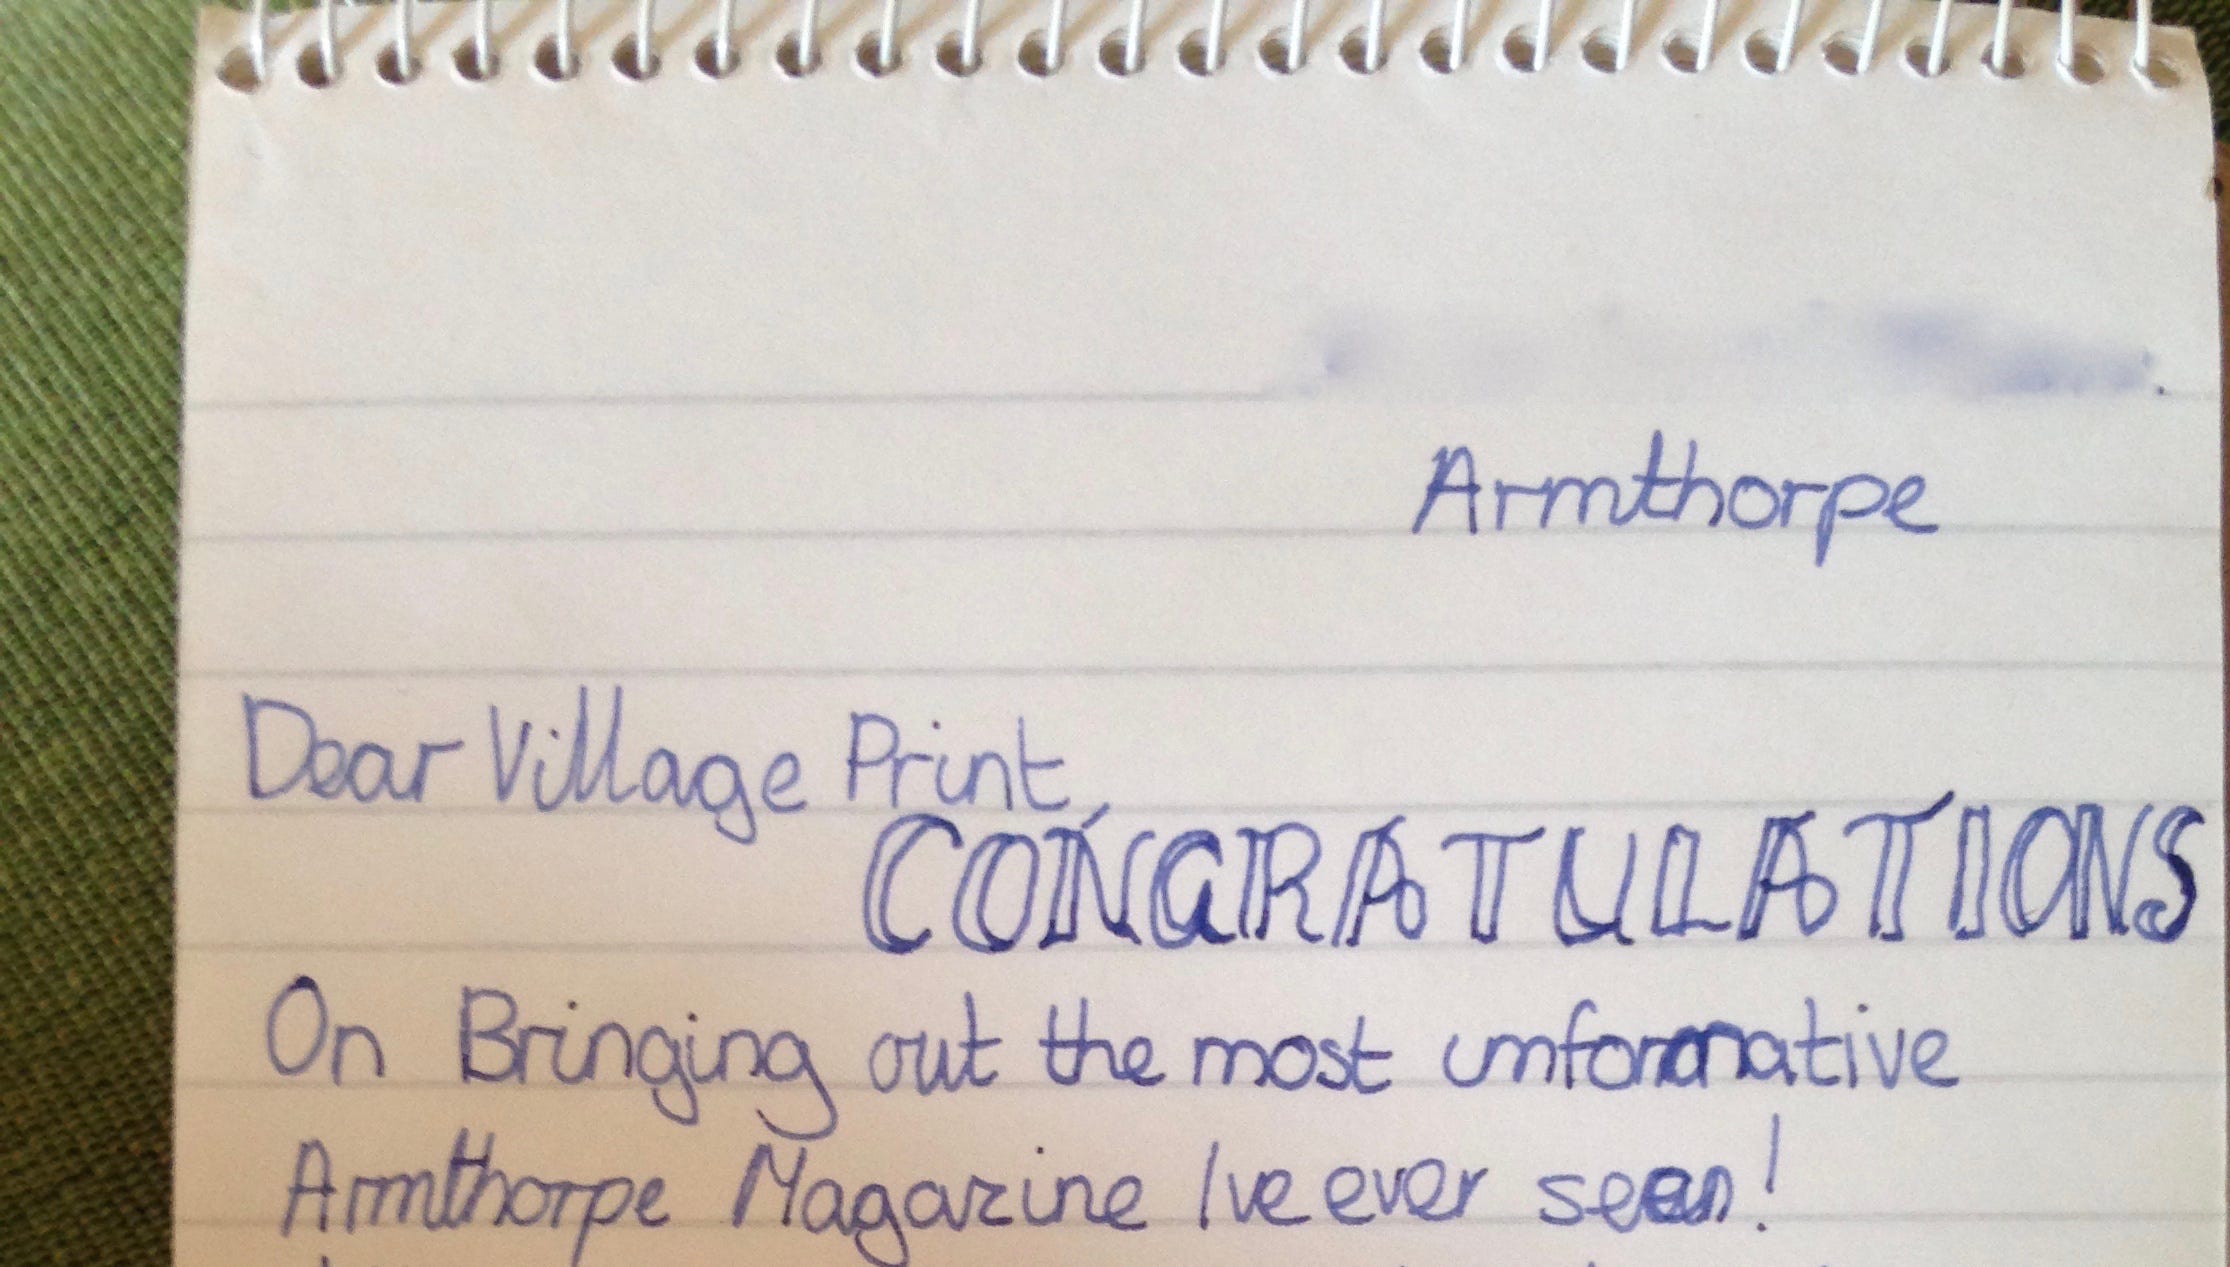 Armthorpe
Dear Village Print,
CONGRATULATIONS
On Bringing out the most imformative
Armthorpe Magazine Ive ever seen!